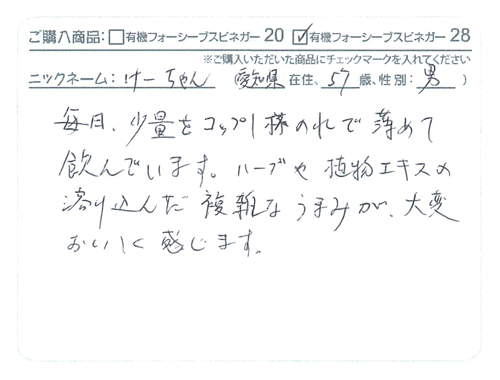 ご購入商品:□有機フォーシーブスビネガー20 ☑有機フォーシーブスビネガー28
※ご購入いただいた商品にチェックマークを入れてください
ニックネーム:けーちゃん (愛知県 在住、57歳、性別:男 )
毎日、少量をコップ1杯の水で薄めて
飲んでいます。ハーブや植物エキスの
溶け込んだ複雑なうまみが、大変
おいしく感じます。